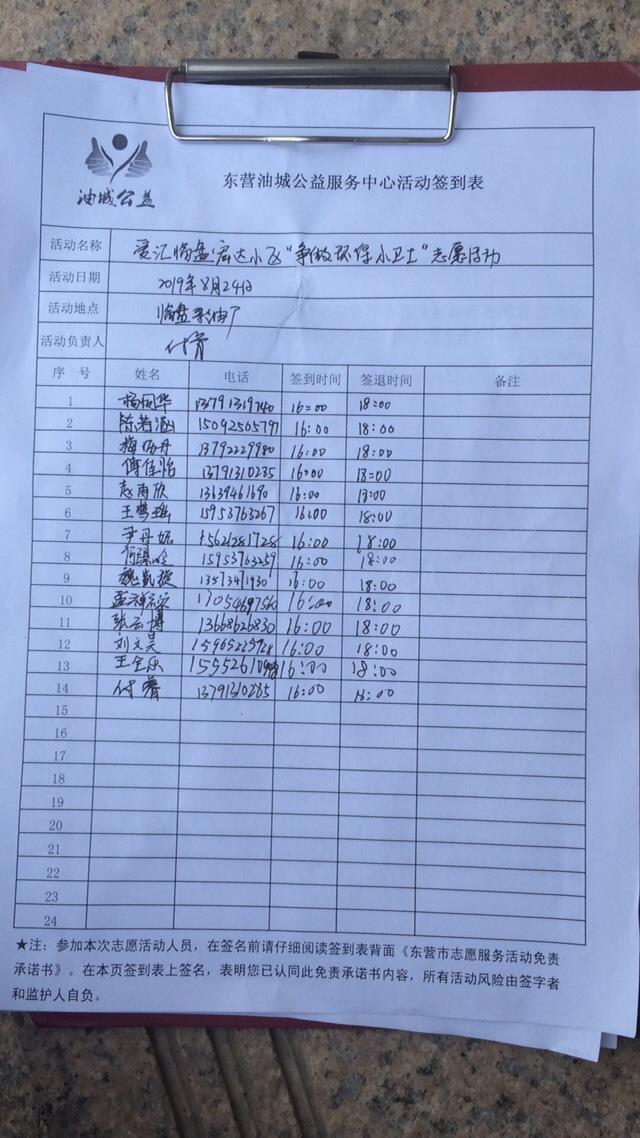 油城公益
东营油城公益服务中心活动签到表
活动名称 爱汇临盘宏达小区“争做环保小卫士”志愿活动
活动日期 2019年8月24日
活动地点 临盘采油厂
活动负责人 付
序 号 姓名 电话 签到时间 签退时间 备注
1 13791319740 16:00 18:00
2 陈若涵 15092565797 16:00 18:00
3 丹 13792229980 16:00 18:00
4 傅佳怡 13791310285 16:00 18:00
5 雨欣 13639461690 16:00 18:00
6 王梦瑶 15953763267 16:00 18:00
7 尹丹妮 15621281728 16:00 18:00
8 15953763259 16:00 18:00
9 魏凯旋 16:00 18:00
10 16:00 18:00
11 张云博 13668626830 16:00 18:00
12 刘文昊 16:00 18:00
13 王 16:00 18:00
14 付 13791310285 16:00 18:00
15
16
17
18
19
20
21
22
23
24
★注：参加本次志愿活动人员，在签名前请仔细阅读签到表背面《东营市志愿服务活动免责
承诺书》。在本页签到表上签名，表明您已认同此免责承诺书内容，所有活动风险由签字者
和监护人自负。